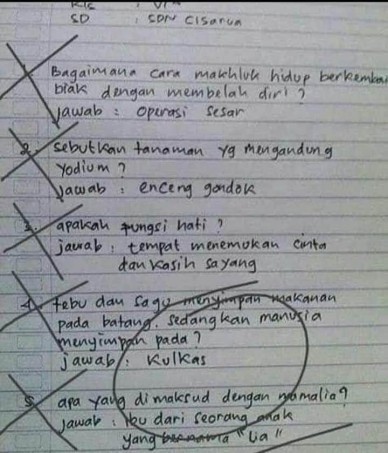 Kls : VI
SD : SDN Cisarua
1. Bagaimana cara makhluk hidup berkemban
biak dengan membelah diri ?
jawab : operasi sesar
2. sebutkan tanaman yg mengandung
yodium ?
jawab : enceng gondok
3. apakah fungsi hati ?
jawab : tempat menemukan cinta
dan kasih sayang
4. tebu dan sagu menyimpan makanan
pada batang. sedangkan manusia
menyimpan pada ?
jawab : kulkas
5. apa yang dimaksud dengan mamalia ?
jawab : Ibu dari seorang anak
yang bernama "Lia"